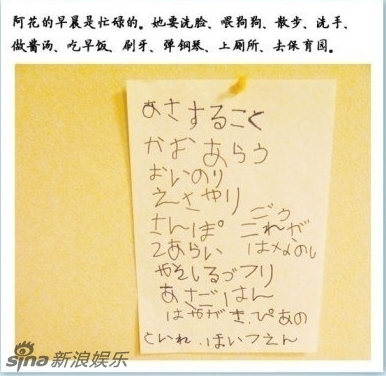 阿花的早晨是忙碌的。她要洗脸、喂狗狗、散步、洗手、
做酱汤、吃早饭、刷牙、弹钢琴、上厕所、去保育园。
あさすること
かおあらう
おいのり
えさやり
さんぽ
てあらい
ごう
これが
はなのし
みそしるづくり
あさごはん
はやがき、ぴあの
といれ、ほいつえん
sina 新浪娱乐